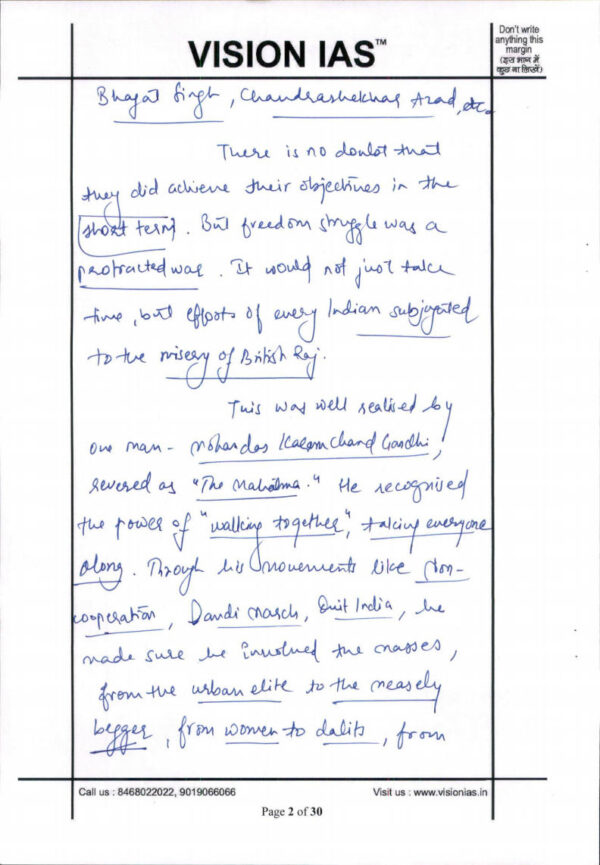 VISION IAS™
Don't write
anything this
margin
(इस भाग में
कुछ ना लिखें)
Bhagat Singh, Chandrashekhar Azad, etc.
There is no doubt that
they did achieve their objectives in the
short term. But freedom struggle was a
protracted war. It would not just take
time, but efforts of every Indian subjugated
to the misery of British Raj.
This was well realised by
one man - Mohandas Karamchand Gandhi,
revered as "The Mahatma." He recognised
the power of "walking together", taking everyone
along. Through his movements like Non-
cooperation, Dandi March, Quit India, he
made sure he involved the masses,
from the urban elite to the measely
begger, from women to dalits, from
Call us : 8468022022, 9019066066
Visit us : www.visionias.in
Page 2 of 30